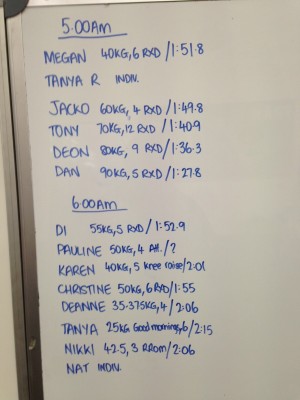 5.00am
MEGAN 40KG, 6 RXD / 1:51.8
TANYA R INDIV.
JACKO 60KG, 4 RXD / 1:49.8
TONY 70KG, 12 RXD / 1:40.9
DEON 80KG, 9 RXD / 1:36.3
DAN 90KG, 5 RXD / 1:27.8
6:00am
DI 55KG, 5 RXD / 1:52.9
PAULINE 50KG, 4 Alt. / ?
KAREN 40KG, 5 knee raise / 2:01
CHRISTINE 50KG, 6 RXD / 1:55
DEANNE 35-37.5KG, 4 / 2:06
TANYA 25KG Good morning, 6 / 2:15
NIKKI 42.5, 3 RRom / 2:06
NAT INDIV.